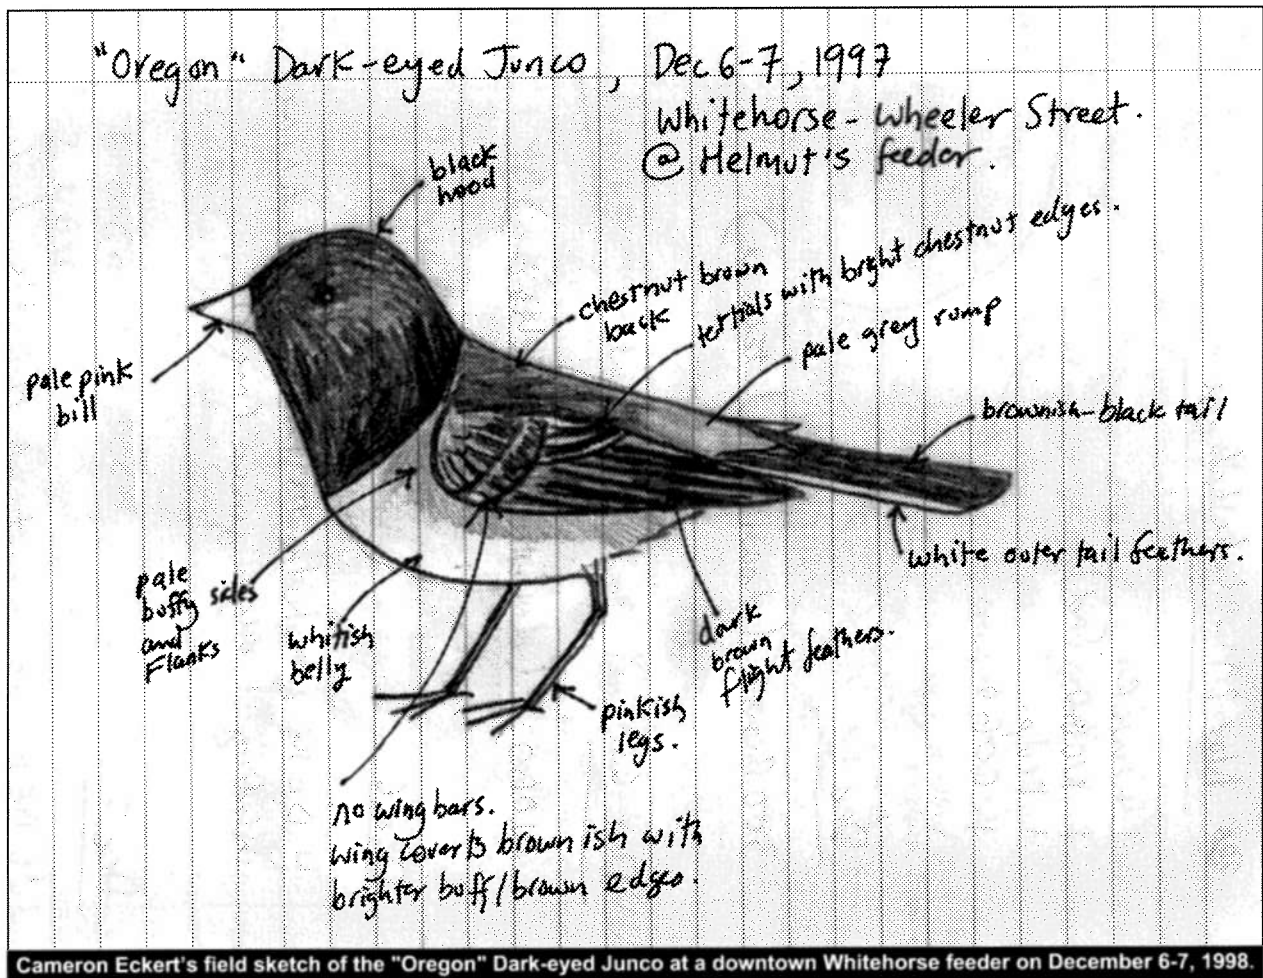 "Oregon" Dark-eyed Junco, Dec 6-7, 1997
Whitehorse - Wheeler Street.
@ Helmut's feeder.
black
hood
chestnut brown
back
tertials with bright chestnut edges.
pale grey rump
pale pink
bill
brownish-black tail
white outer tail feathers.
pale
buffy sides
and
Flanks
whitish
belly
dark
brown
flight feathers.
pinkish
legs.
no wing bars.
wing coverts brownish with
brighter buff/brown edges.
Cameron Eckert's field sketch of the "Oregon" Dark-eyed Junco at a downtown Whitehorse feeder on December 6-7, 1998.